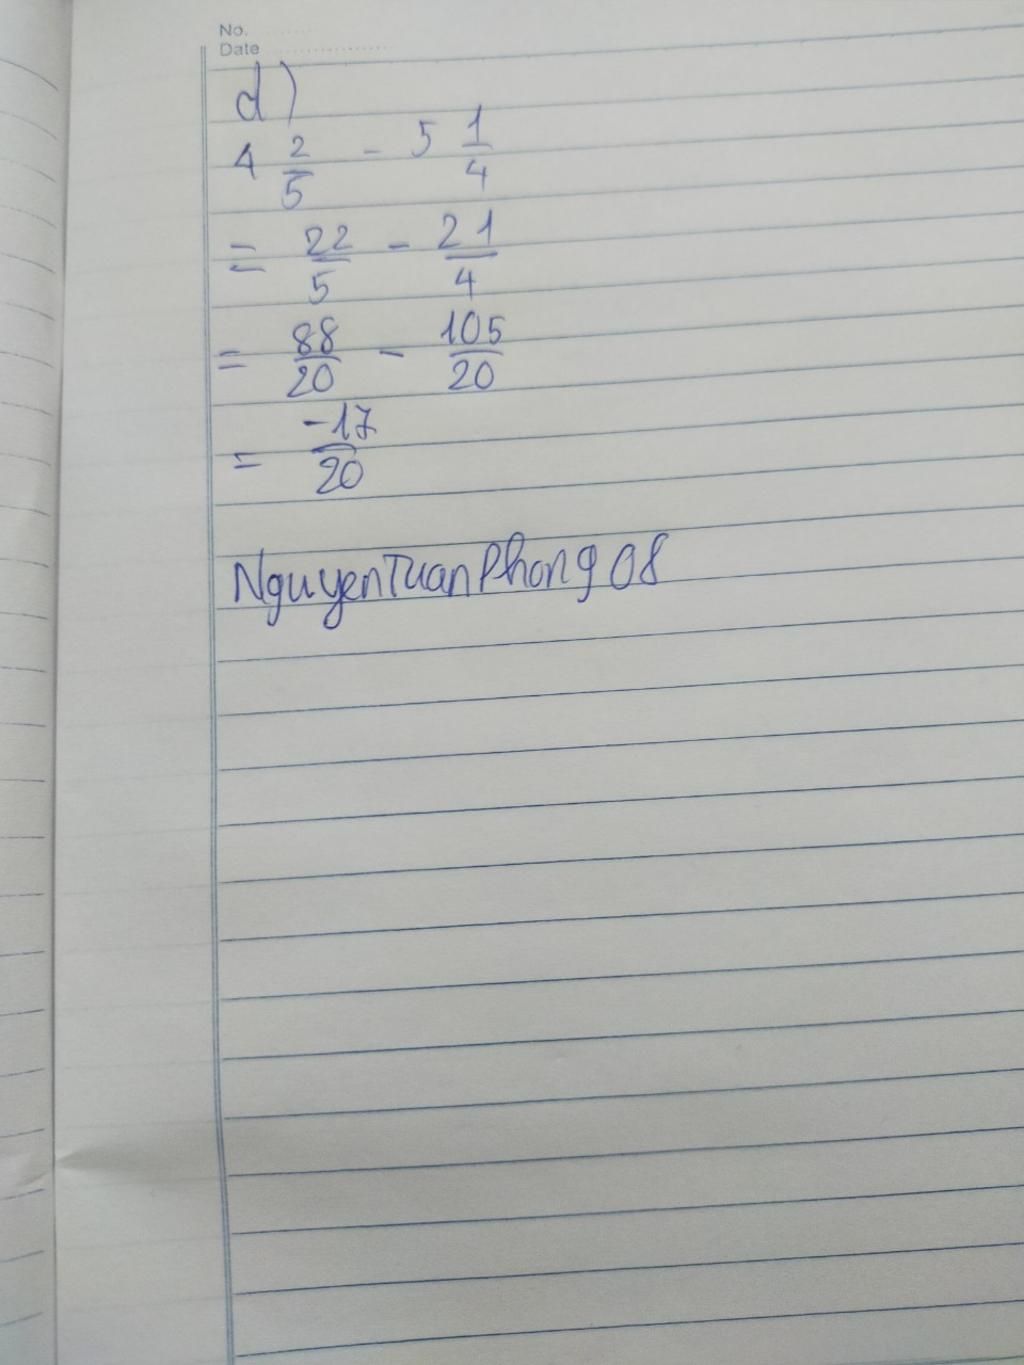 No.
Date
d)
4 2/5 - 5 1/4
= 22/5 - 21/4
= 88/20 - 105/20
= -17/20
NguyenTuanPhong08